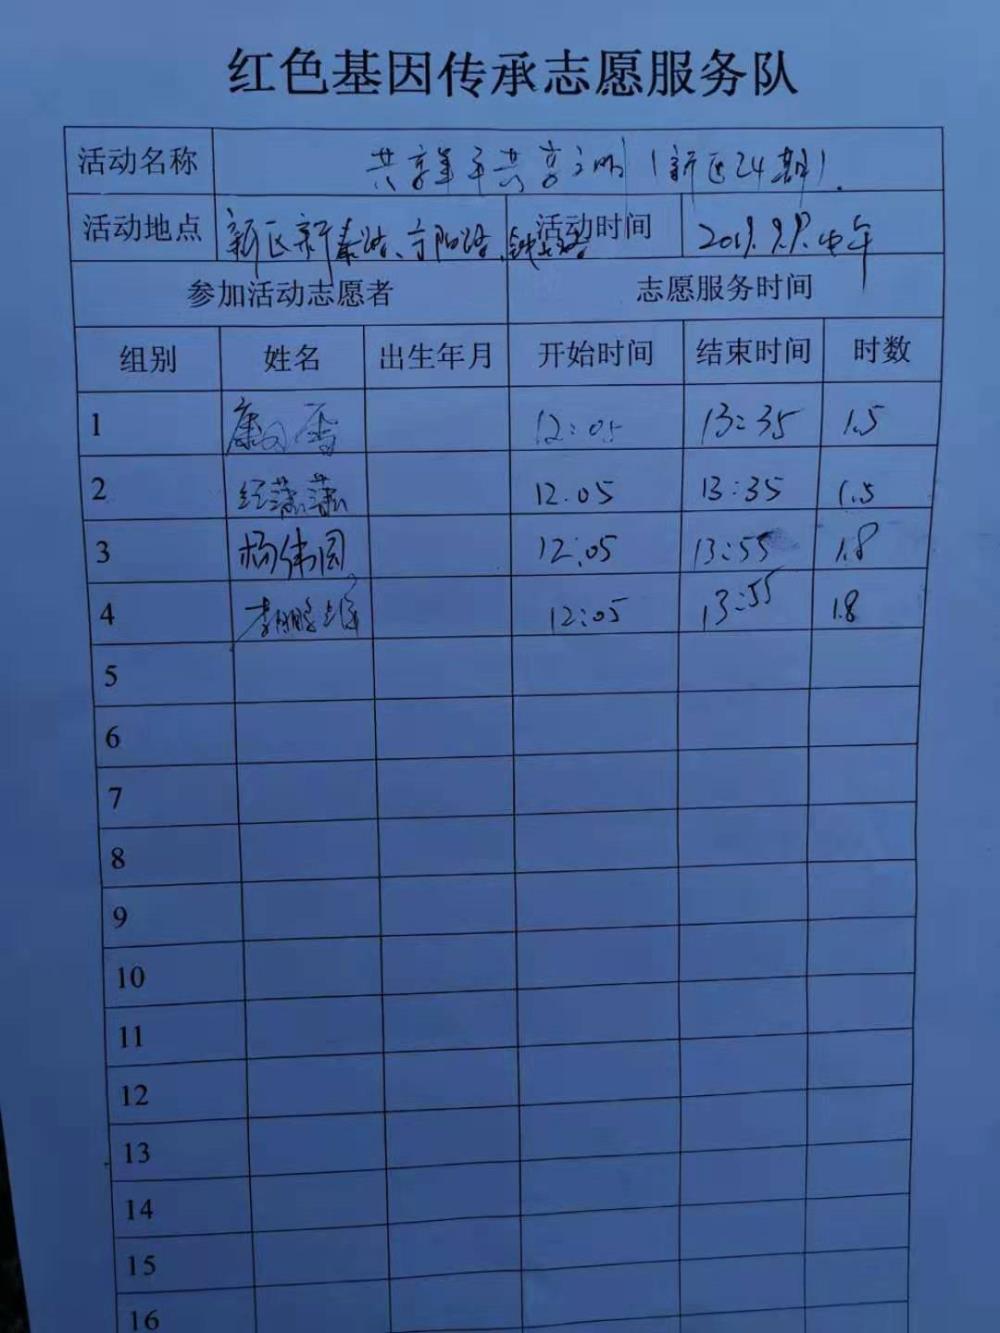 红色基因传承志愿服务队
活动名称 共享单车共享文明（新区24期）.
活动地点 新区新泰路、 活动时间 2019.9.9.中午
参加活动志愿者 志愿服务时间
组别 姓名 出生年月 开始时间 结束时间 时数
1 12:05 13:35 1.5
2 12.05 13:35 1.5
3 杨伟国 12:05 13:55 1.8
4 12:05 13:55 1.8
5
6
7
8
9
10
11
12
13
14
15
16